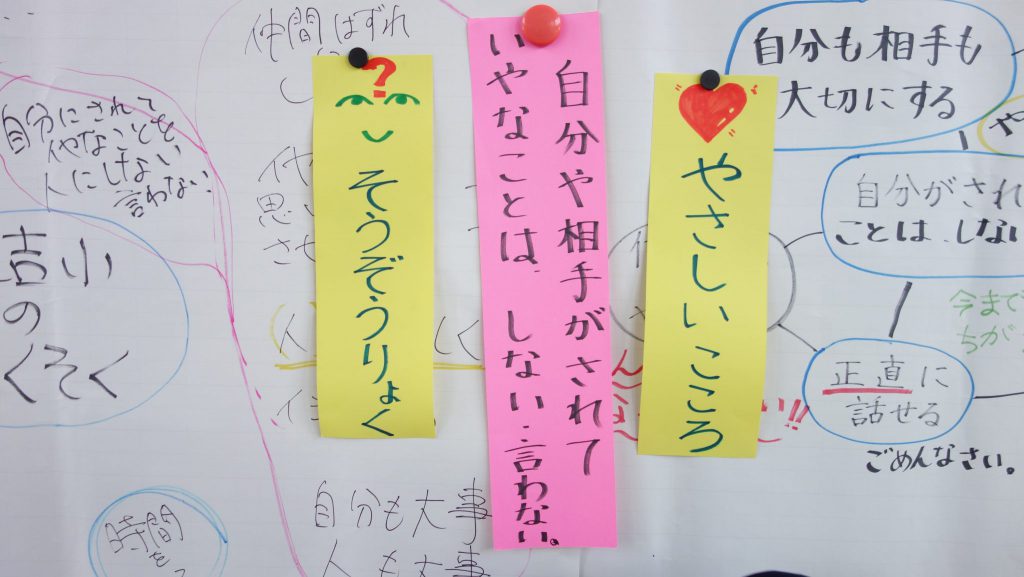 仲間はずれ
自分にされて
いやなことを
人にしない
言わない
小
の
くそく
時間
を
?
そうぞうりょく
自分や相手がされて
いやなことは、しない・言わない。
やさしいこころ
自分も相手も
大切にする
自分がされ
ことは、しない
今まで
ちが
正直に
話せる
ごめんなさい。
思い
させ
人
自分も大事
人も大事